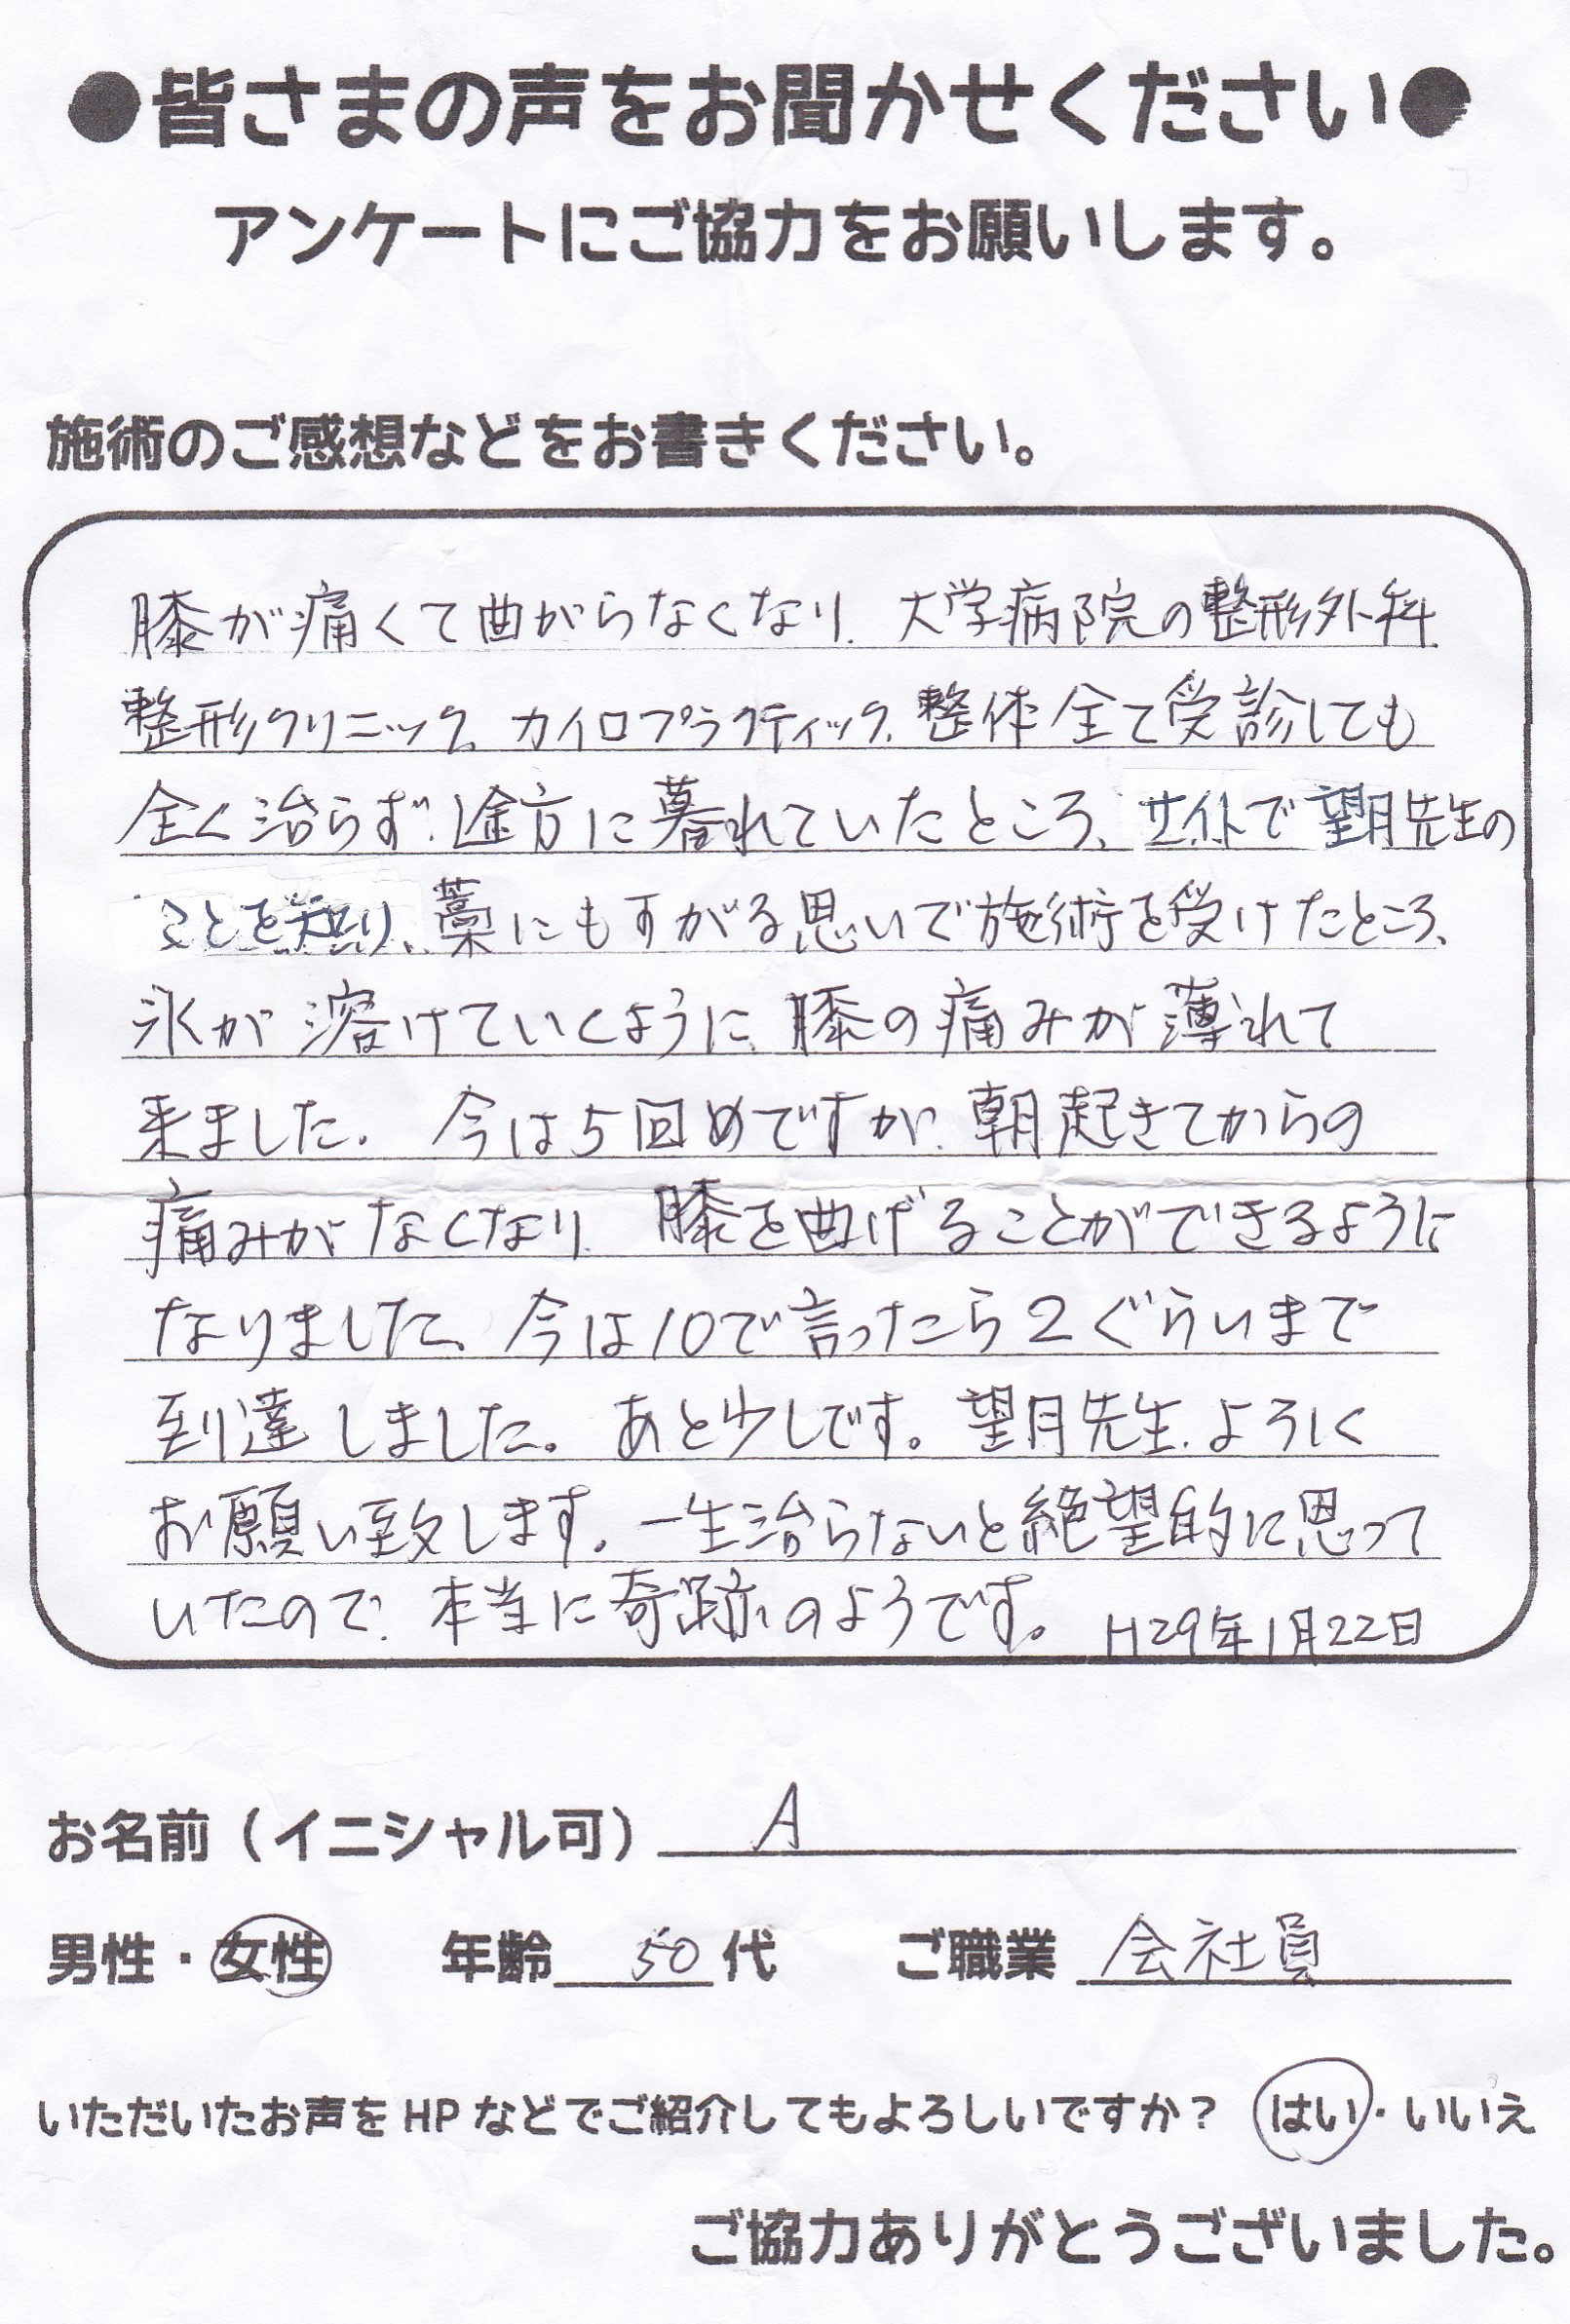 ●皆さまの声をお聞かせください●
アンケートにご協力をお願いします。
施術のご感想などをお書きください。
膝が痛くて曲がらなくなり、大学病院の整形外科
整形クリニック、カイロプラクティック、整体全て受診しても
全く治らず、途方に暮れていたところ、サイトで望月先生の
ことを知り、藁にもすがる思いで施術を受けたところ、
氷が溶けていくように、膝の痛みが薄れて
来ました。今は5回めですが、朝起きてからの
痛みがなくなり、膝を曲げることができるように
なりました。今は10で言ったら2ぐらいまで
到達しました。あと少しです。望月先生、よろしく
お願い致します。一生治らないと絶望的に思って
いたので、本当に奇跡のようです。 H29年1月22日
お名前（イニシャル可） A
男性・女性 年齢 50代 ご職業 会社員
いただいたお声をHPなどでご紹介してもよろしいですか？ はい・いいえ
ご協力ありがとうございました。